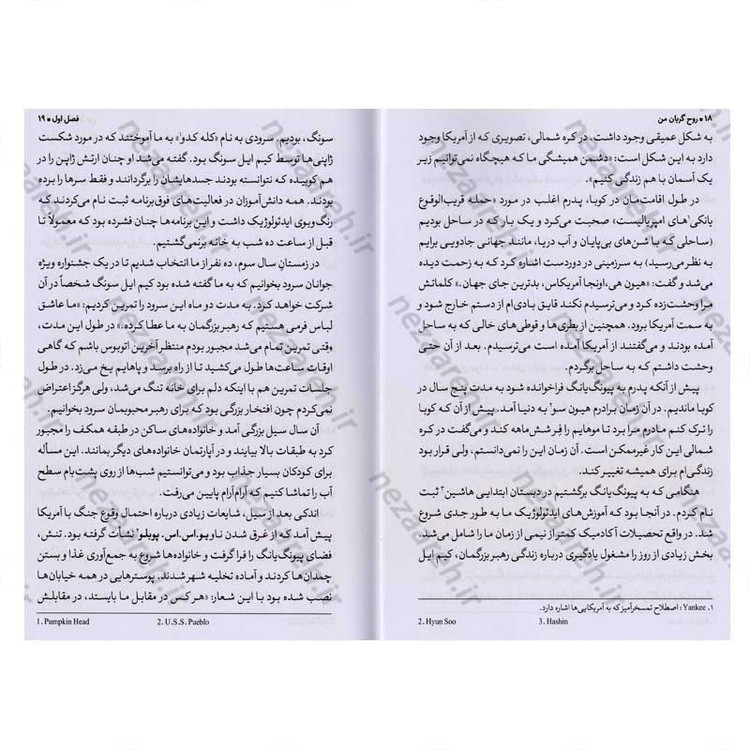 ۱۸ • روح گریان من
به شکل عمیقی وجود داشت. در کره شمالی، تصویری که از آمریکا وجود
دارد به این شکل است: «دشمن همیشگی ما که هیچگاه نمی‌توانیم زیر
یک آسمان با هم زندگی کنیم».
در طول اقامت‌مان در کوبا، پدرم اغلب در مورد «حمله قریب‌الوقوع
یانکی۱های امپریالیست» صحبت می‌کرد و یک بار که در ساحل بودیم
(ساحلی که با شن‌های بی‌پایان و آب دریا، مانند جهانی جادویی برایم
به نظر می‌رسید) به سرزمینی در دوردست اشاره کرد که به زحمت دیده
می‌شد و گفت: «هیون هی، اونجا آمریکاس، بدترین جای جهان.» کلماتش
مرا وحشت‌زده کرد و می‌ترسیدم نکند قایق بادی‌ام از دستم خارج شود و
به سمت آمریکا برود. همچنین از بطری‌ها و قوطی‌های خالی که به ساحل
آمده بودند و می‌گفتند از آمریکا آمده است می‌ترسیدم. بعد از آن حتی
وحشت داشتم که به ساحل برگردم.
پیش از آنکه پدرم به پیونگ‌یانگ فراخوانده شود به مدت پنج سال در
کوبا ماندیم. در آن زمان برادرم هیون سو۲ به دنیا آمد. پیش از آن که کوبا
را ترک کنم مادرم مرا برد تا موهایم را فِر شش‌ماهه کند و می‌گفت در کره
شمالی این کار غیرممکن است. آن زمان این را نمی‌دانستم، ولی قرار بود
زندگی‌ام برای همیشه تغییر کند.
هنگامی که به پیونگ‌یانگ برگشتیم در دبستان ابتدایی هاشین۳ ثبت
نام کردم. در آنجا بود که آموزش‌های ایدئولوژیک ما به طور جدی شروع
شد. در واقع تحصیلات آکادمیک کمتر از نیمی از زمان ما را شامل می‌شد.
بخش زیادی از روز را مشغول یادگیری درباره زندگی رهبر بزرگمان، کیم ایل
۱. Yankee: اصطلاح تمسخرآمیز که به آمریکایی‌ها اشاره دارد.
2. Hyun Soo 3. Hashin
فصل اول • ۱۹
سونگ، بودیم. سرودی به نام «کله کدو۱» به ما آموختند که در مورد شکست
ژاپنی‌ها توسط کیم ایل سونگ بود. گفته می‌شد او چنان ارتش ژاپن را در
هم کوبیده که نتوانسته بودند جسدهایشان را برگردانند و فقط سرها را برده
بودند. همه دانش‌آموزان در فعالیت‌های فوق‌برنامه ثبت نام می‌کردند که
رنگ‌وبوی ایدئولوژیک داشت و این برنامه‌ها چنان فشرده بود که معمولاً تا
قبل از ساعت ده شب به خانه برنمی‌گشتیم.
در زمستانِ سال سوم، ده نفر از ما انتخاب شدیم تا در یک جشنواره ویژه
جوانان سرود بخوانیم که به ما گفته شده بود کیم ایل سونگ شخصاً در آن
شرکت خواهد کرد. به مدت دو ماه این سرود را تمرین کردیم: «ما عاشق
لباس فرمی هستیم که رهبر بزرگمان به ما عطا کرده.» در طول این مدت،
وقتی تمرین تمام می‌شد مجبور بودم منتظر آخرین اتوبوس باشم که گاهی
اوقات ساعت‌ها طول می‌کشید تا از راه برسد و پاهایم یخ می‌زد. در طول
جلسات تمرین هم با اینکه دلم برای خانه تنگ می‌شد، ولی هرگز اعتراض
نمی‌کردم چون افتخار بزرگی بود که برای رهبر محبوبمان سرود بخوانیم.
آن سال سیل بزرگی آمد و خانواده‌های ساکن در طبقه همکف را مجبور
کرد به طبقات بالا بیایند و در آپارتمان خانواده‌های دیگر بمانند. این مسأله
برای کودکان بسیار جذاب بود و می‌توانستیم شب‌ها از روی پشت‌بام سطح
آب را تماشا کنیم که آرام‌آرام پایین می‌رفت.
اندکی بعد از سیل، شایعات زیادی درباره احتمال وقوع جنگ با آمریکا
پیش آمد که از غرق شدن ناو یو.اس.اس. پوبلو۲ نشأت گرفته بود. تنش،
فضای پیونگ‌یانگ را فرا گرفت و خانواده‌ها شروع به جمع‌آوری غذا و بستن
چمدان‌ها کردند و آماده تخلیه شهر شدند. پوسترهایی در همه خیابان‌ها
نصب شده بود با این شعار: «هر کس در مقابل ما بایستد، در مقابلش
1. Pumpkin Head 2. U.S.S. Pueblo
nezaareh.ir